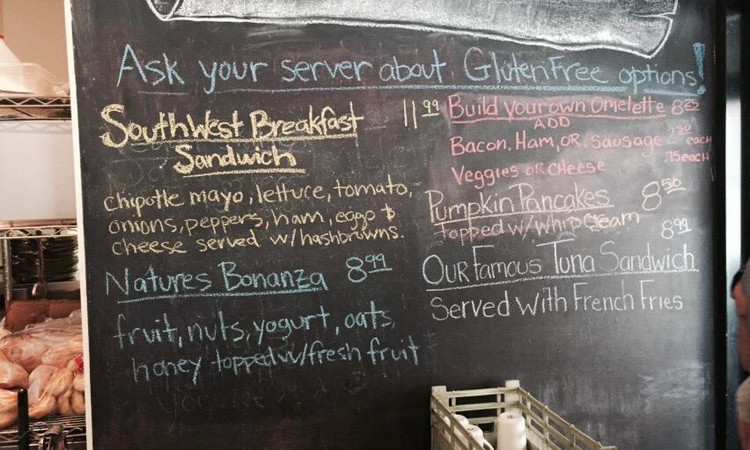 Ask your server about Gluten Free options!
SouthWest Breakfast 11.99
Sandwich
chipotle mayo, lettuce, tomato,
onions, peppers, ham, eggs &
cheese served w/hashbrowns.
Natures Bonanza 8.99
fruit, nuts, yogurt, oats,
honey topped w/fresh fruit
Build your own Omelette 8.25
ADD
Bacon, Ham, OR Sausage each
Veggies OR Cheese .75 each
Pumpkin Pancakes 8.50
topped w/whip cream
8.99
Our Famous Tuna Sandwich
Served With French Fries